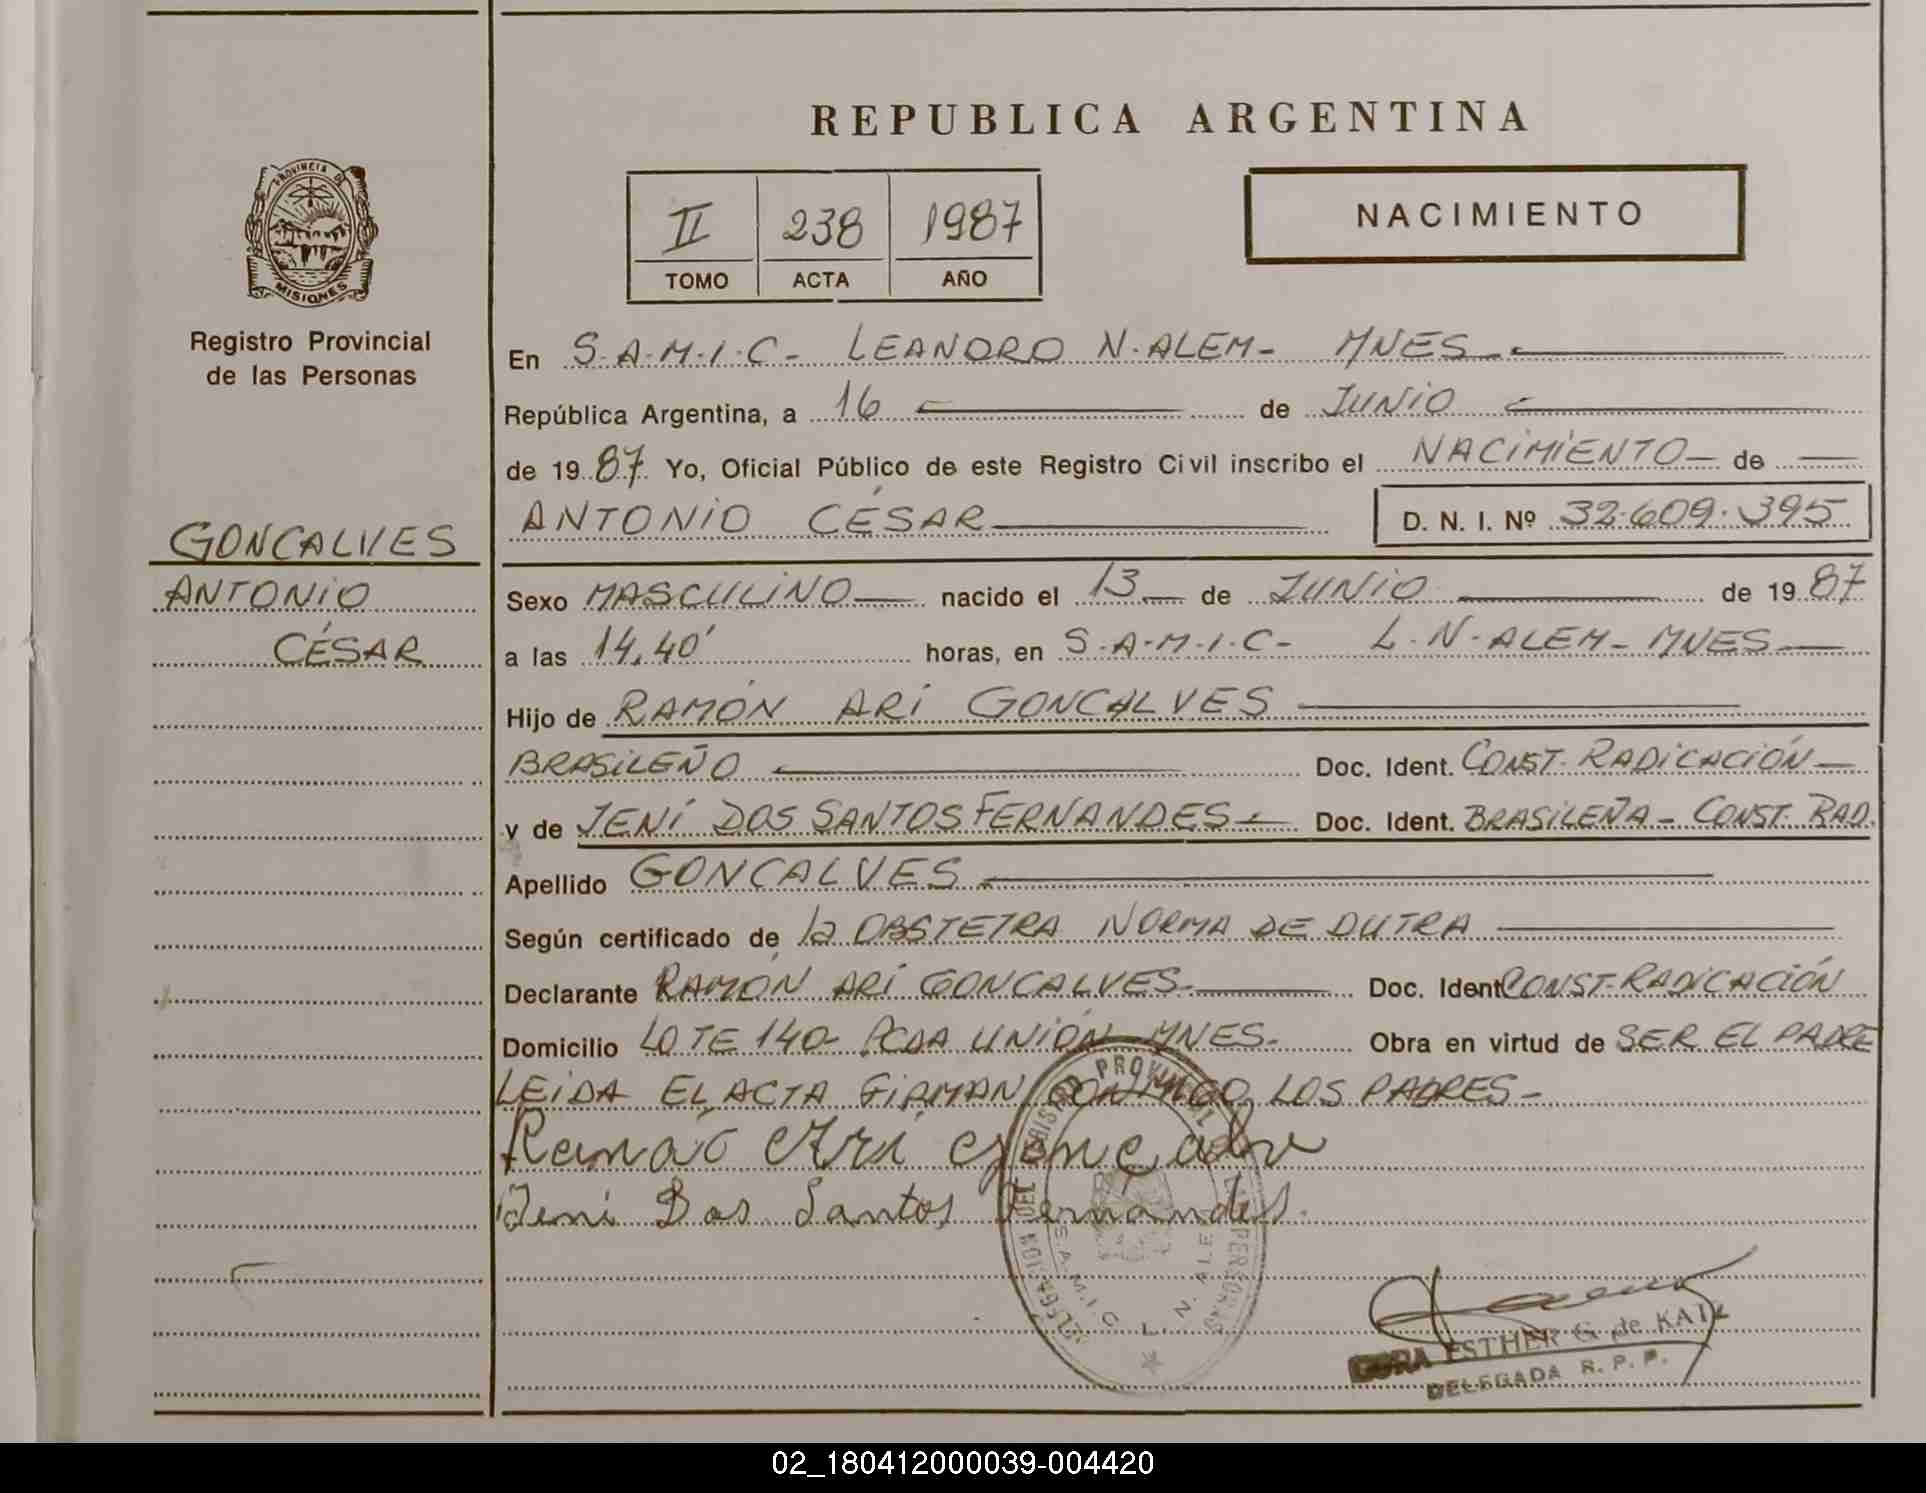 REPUBLICA ARGENTINA
PROVINCIA DE
MISIONES
Registro Provincial
de las Personas
II 238 1987
TOMO ACTA AÑO
NACIMIENTO
En S.A.M.I.C- LEANDRO N. ALEM- MNES-
República Argentina, a 16 de JUNIO
de 1987 Yo, Oficial Público de este Registro Civil inscribo el NACIMIENTO de
ANTONIO CÉSAR D. N. I. Nº 32.609.395
GONCALVES
ANTONIO
CÉSAR
Sexo MASCULINO nacido el 13 de JUNIO de 1987
a las 14,40' horas, en S.A.M.I.C- L.N. ALEM- MNES
Hijo de RAMÓN ARI GONCALVES
BRASILEÑO Doc. Ident. CONST. RADICACIÓN
y de JENÍ DOS SANTOS FERNANDES- Doc. Ident. BRASILEÑA- CONST. RAD.
Apellido GONCALVES
Según certificado de la OBSTETRA NORMA DE DUTRA
Declarante RAMÓN ARI GONCALVES Doc. Ident CONST. RADICACIÓN
Domicilio LOTE 140- PCDA UNIÓN MNES- Obra en virtud de SER EL PADRE
LEIDA EL ACTA FIRMAN CONMIGO LOS PADRES-
Ramáo Ari Gonçalv
Jeni Dos Santos Fernandes.
DEL PROVINCIAL
S.A.M.I.C. L. N. ALEM
ESTHER G. de KATZ
DELEGADA R. P. P.
02_180412000039-004420